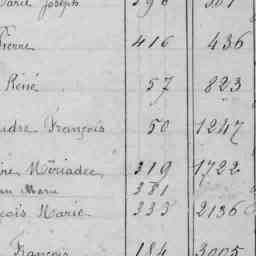 Marie Joseph 396 301
Pierre 416 436
René 57 823
François 50 1247
Mériadec 319 1722
Marie 381
Marie 335 2136
François 184 3005